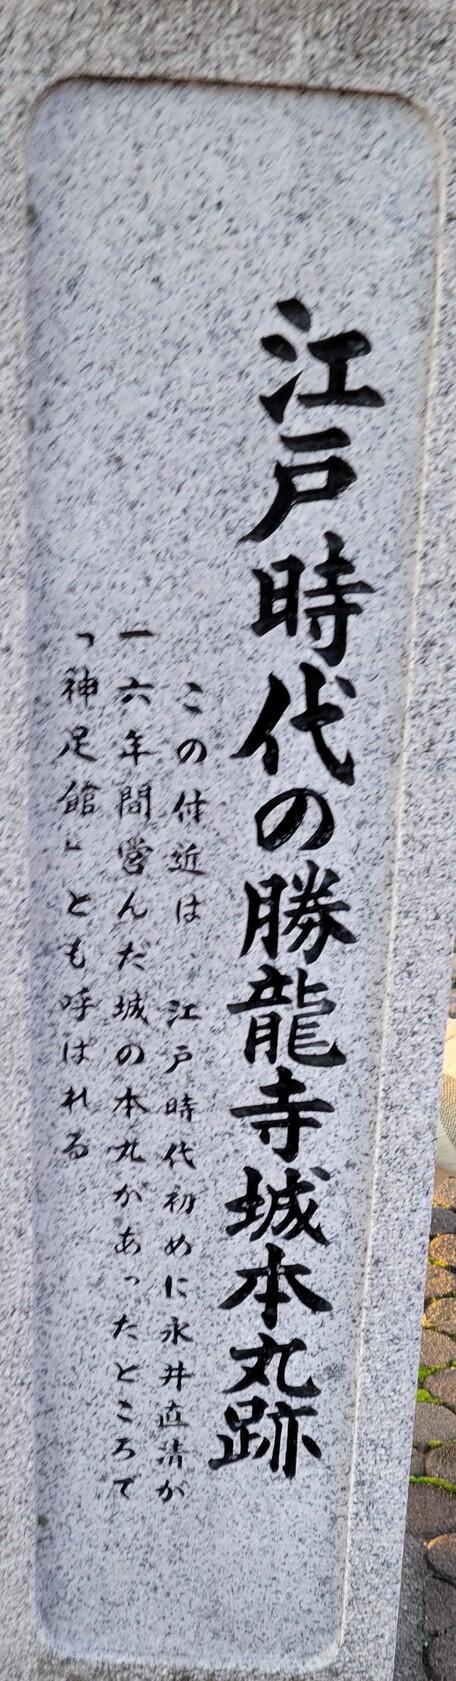 江戸時代の勝龍寺城本丸跡
この付近は 江戸時代初めに永井直清が
一六年間営んだ城の本丸があったところで
「神足館」とも呼ばれる。